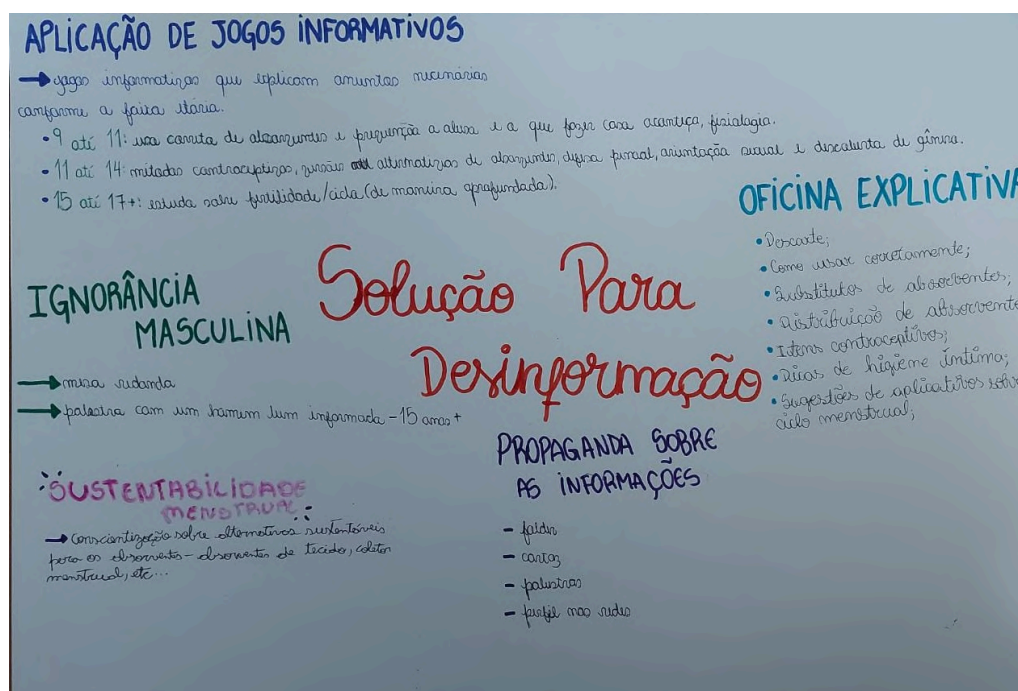 APLICAÇÃO DE JOGOS INFORMATIVOS
→ jogos informativos que explicam assuntos necessários
conforme a faixa etária.
• 9 até 11: uso correto de absorventes e prevenção a abuso e o que fazer caso aconteça, fisiologia.
• 11 até 14: métodos contraceptivos, versões alternativas de absorventes, defesa pessoal, orientação sexual e descoberta de gênero.
• 15 até 17+: estudo sobre fertilidade/ciclo (de maneira aprofundada).
OFICINA EXPLICATIVA
• Descarte;
• Como usar corretamente;
• Substitutos de absorventes;
• Distribuição de absorvente
• Itens contraceptivos;
• Dicas de higiene íntima;
• Sugestões de aplicativos sobre
ciclo menstrual;
Solução Para
Desinformação
IGNORÂNCIA
MASCULINA
→ mesa redonda
→ palestra com um homem bem informado - 15 anos +
SUSTENTABILIDADE
MENSTRUAL
→ Conscientização sobre alternativas sustentáveis
para os absorventes - absorventes de tecido, coletor
menstrual, etc...
PROPAGANDA SOBRE
AS INFORMAÇÕES
- folder
- cartaz
- palestras
- perfil nas redes